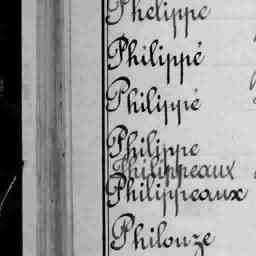 Phelippe
Philippé
Philippé
Philippe
Philippeaux
Philippeaux
Philouze